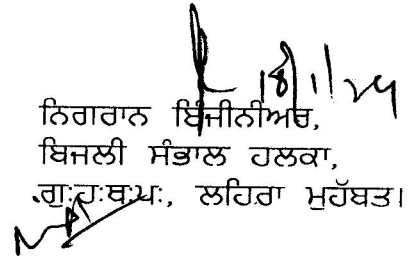 18/1/24
ਨਿਗਰਾਨ ਇੰਜੀਨੀਅਰ,
ਬਿਜਲੀ ਸੰਭਾਲ ਹਲਕਾ,
ਗੁ:ਹ:ਥ:ਪ:, ਲਹਿਰਾ ਮੁਹੱਬਤ।